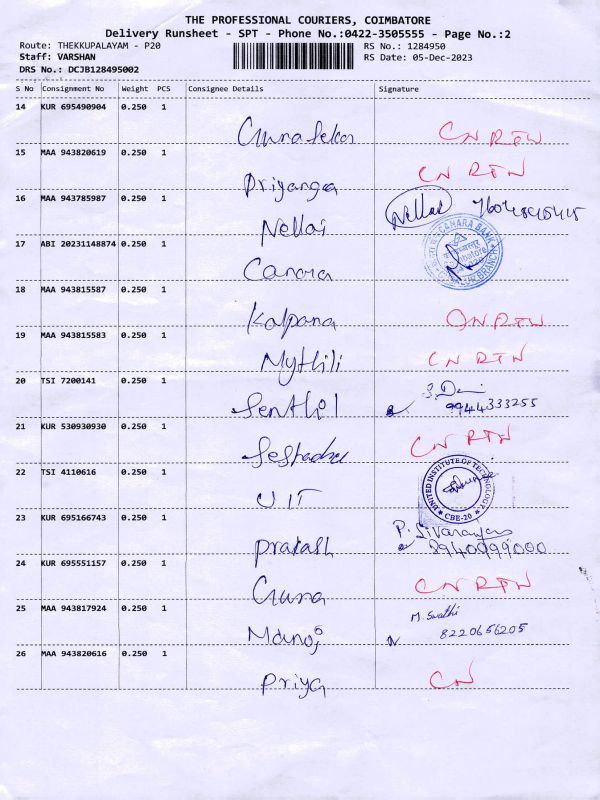 THE PROFESSIONAL COURIERS, COIMBATORE
Delivery Runsheet - SPT - Phone No.:0422-3505555 - Page No.:2
Route: THEKKUPALAYAM - P20
RS No.: 1284950
Staff: VARSHAN
RS Date: 05-Dec-2023
DRS No.: DCJB128495002
S No Consignment No Weight PCS Consignee Details Signature
14 KUR 695490904 0.250 1
Gunasekar CN RTN
15 MAA 943820619 0.250 1
Priyanga CN RTN
16 MAA 943785987 0.250 1
Nellai Nellai
17 ABI 20231148874 0.250 1
Canara CANARA BANK
18 MAA 943815587 0.250 1
Kalpana CN RTN
19 MAA 943815583 0.250 1
Mythili CN RTN
20 TSI 7200141 0.250 1
Senthil 9944333255
21 KUR 530930930 0.250 1
CN RTN
22 TSI 4110616 0.250 1
UIT UNITED INSTITUTE OF TECHNOLOGY CBE-20
23 KUR 695166743 0.250 1
Prakash P. Sivaranjani 8940999000
24 KUR 695551157 0.250 1
Guna CN RTN
25 MAA 943817924 0.250 1
Manoj M. Swathi 8220656205
26 MAA 943820616 0.250 1
Priya CN